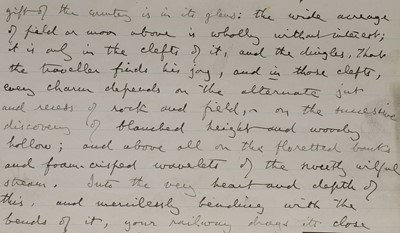 gift of the country is in its glens: the wide acreage
of field or moor above is wholly without interest;
it is only in the clefts of it, and the dingles, that
the traveller finds his joy, and in those clefts,
every charm depends on the alternate jut
and recess of rock and field, - on the successive
discovery of blanched height and woody
hollow; and above all on the floretted banks
and foam-crisped wavelets of the sweetly wilful
stream. Into the very heart and depth of
this, and mercilessly bending with the
bends of it, your railway drags its close